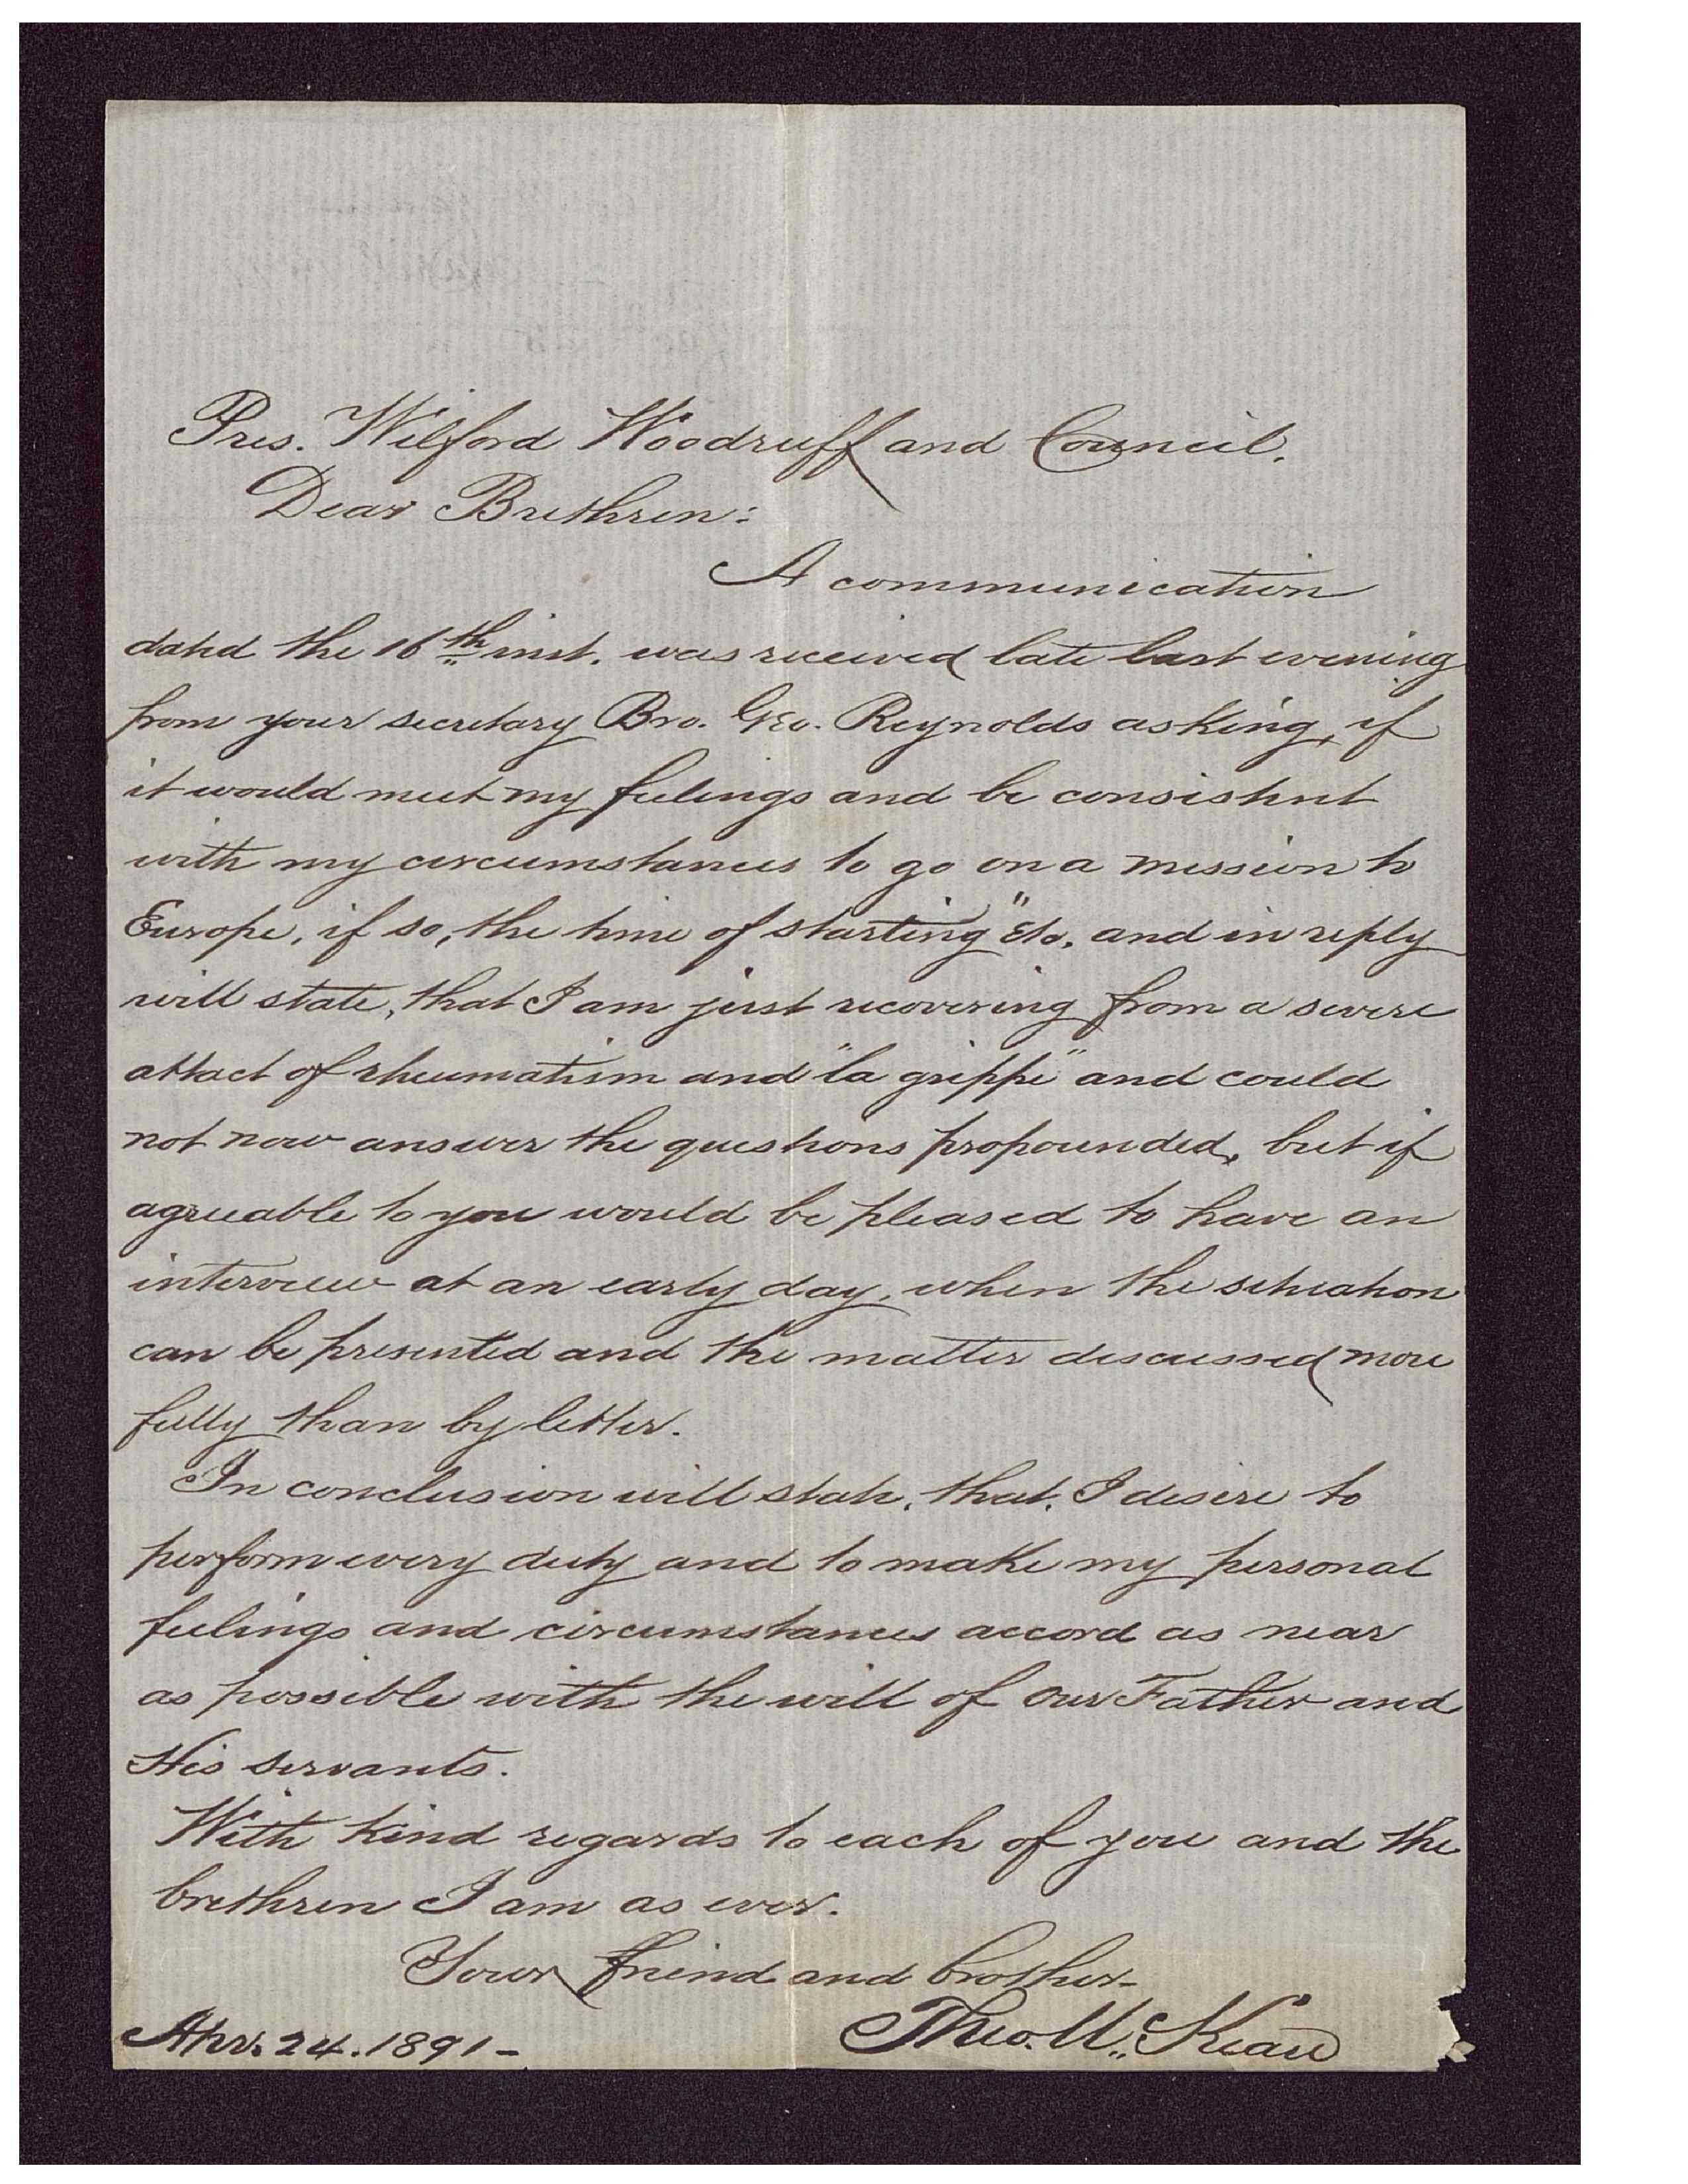 Pres. Wilford Woodruff and Council.
Dear Brethren:
A communication
dated the 16th inst. was received late last evening
from your secretary Bro. Geo. Reynolds asking, if
it would meet my feelings and be consistent
with my circumstances to go on a mission to
Europe, if so, the time of starting" etc. and in reply
will state, that I am just recovering from a severe
attact of rheumatism and "la grippe" and could
not now answer the questions propounded, but if
agreeable to you would be pleased to have an
interview at an early day, when the situation
can be presented and the matter discussed more
fully than by letter.
In conclusion will state, that, I desire to
perform every duty and to make my personal
feelings and circumstances accord as near
as possible with the will of our Father and
His servants.
With kind regards to each of you and the
brethren I am as ever.
Your friend and brother-
Apr. 24. 1891- Theo. McKean